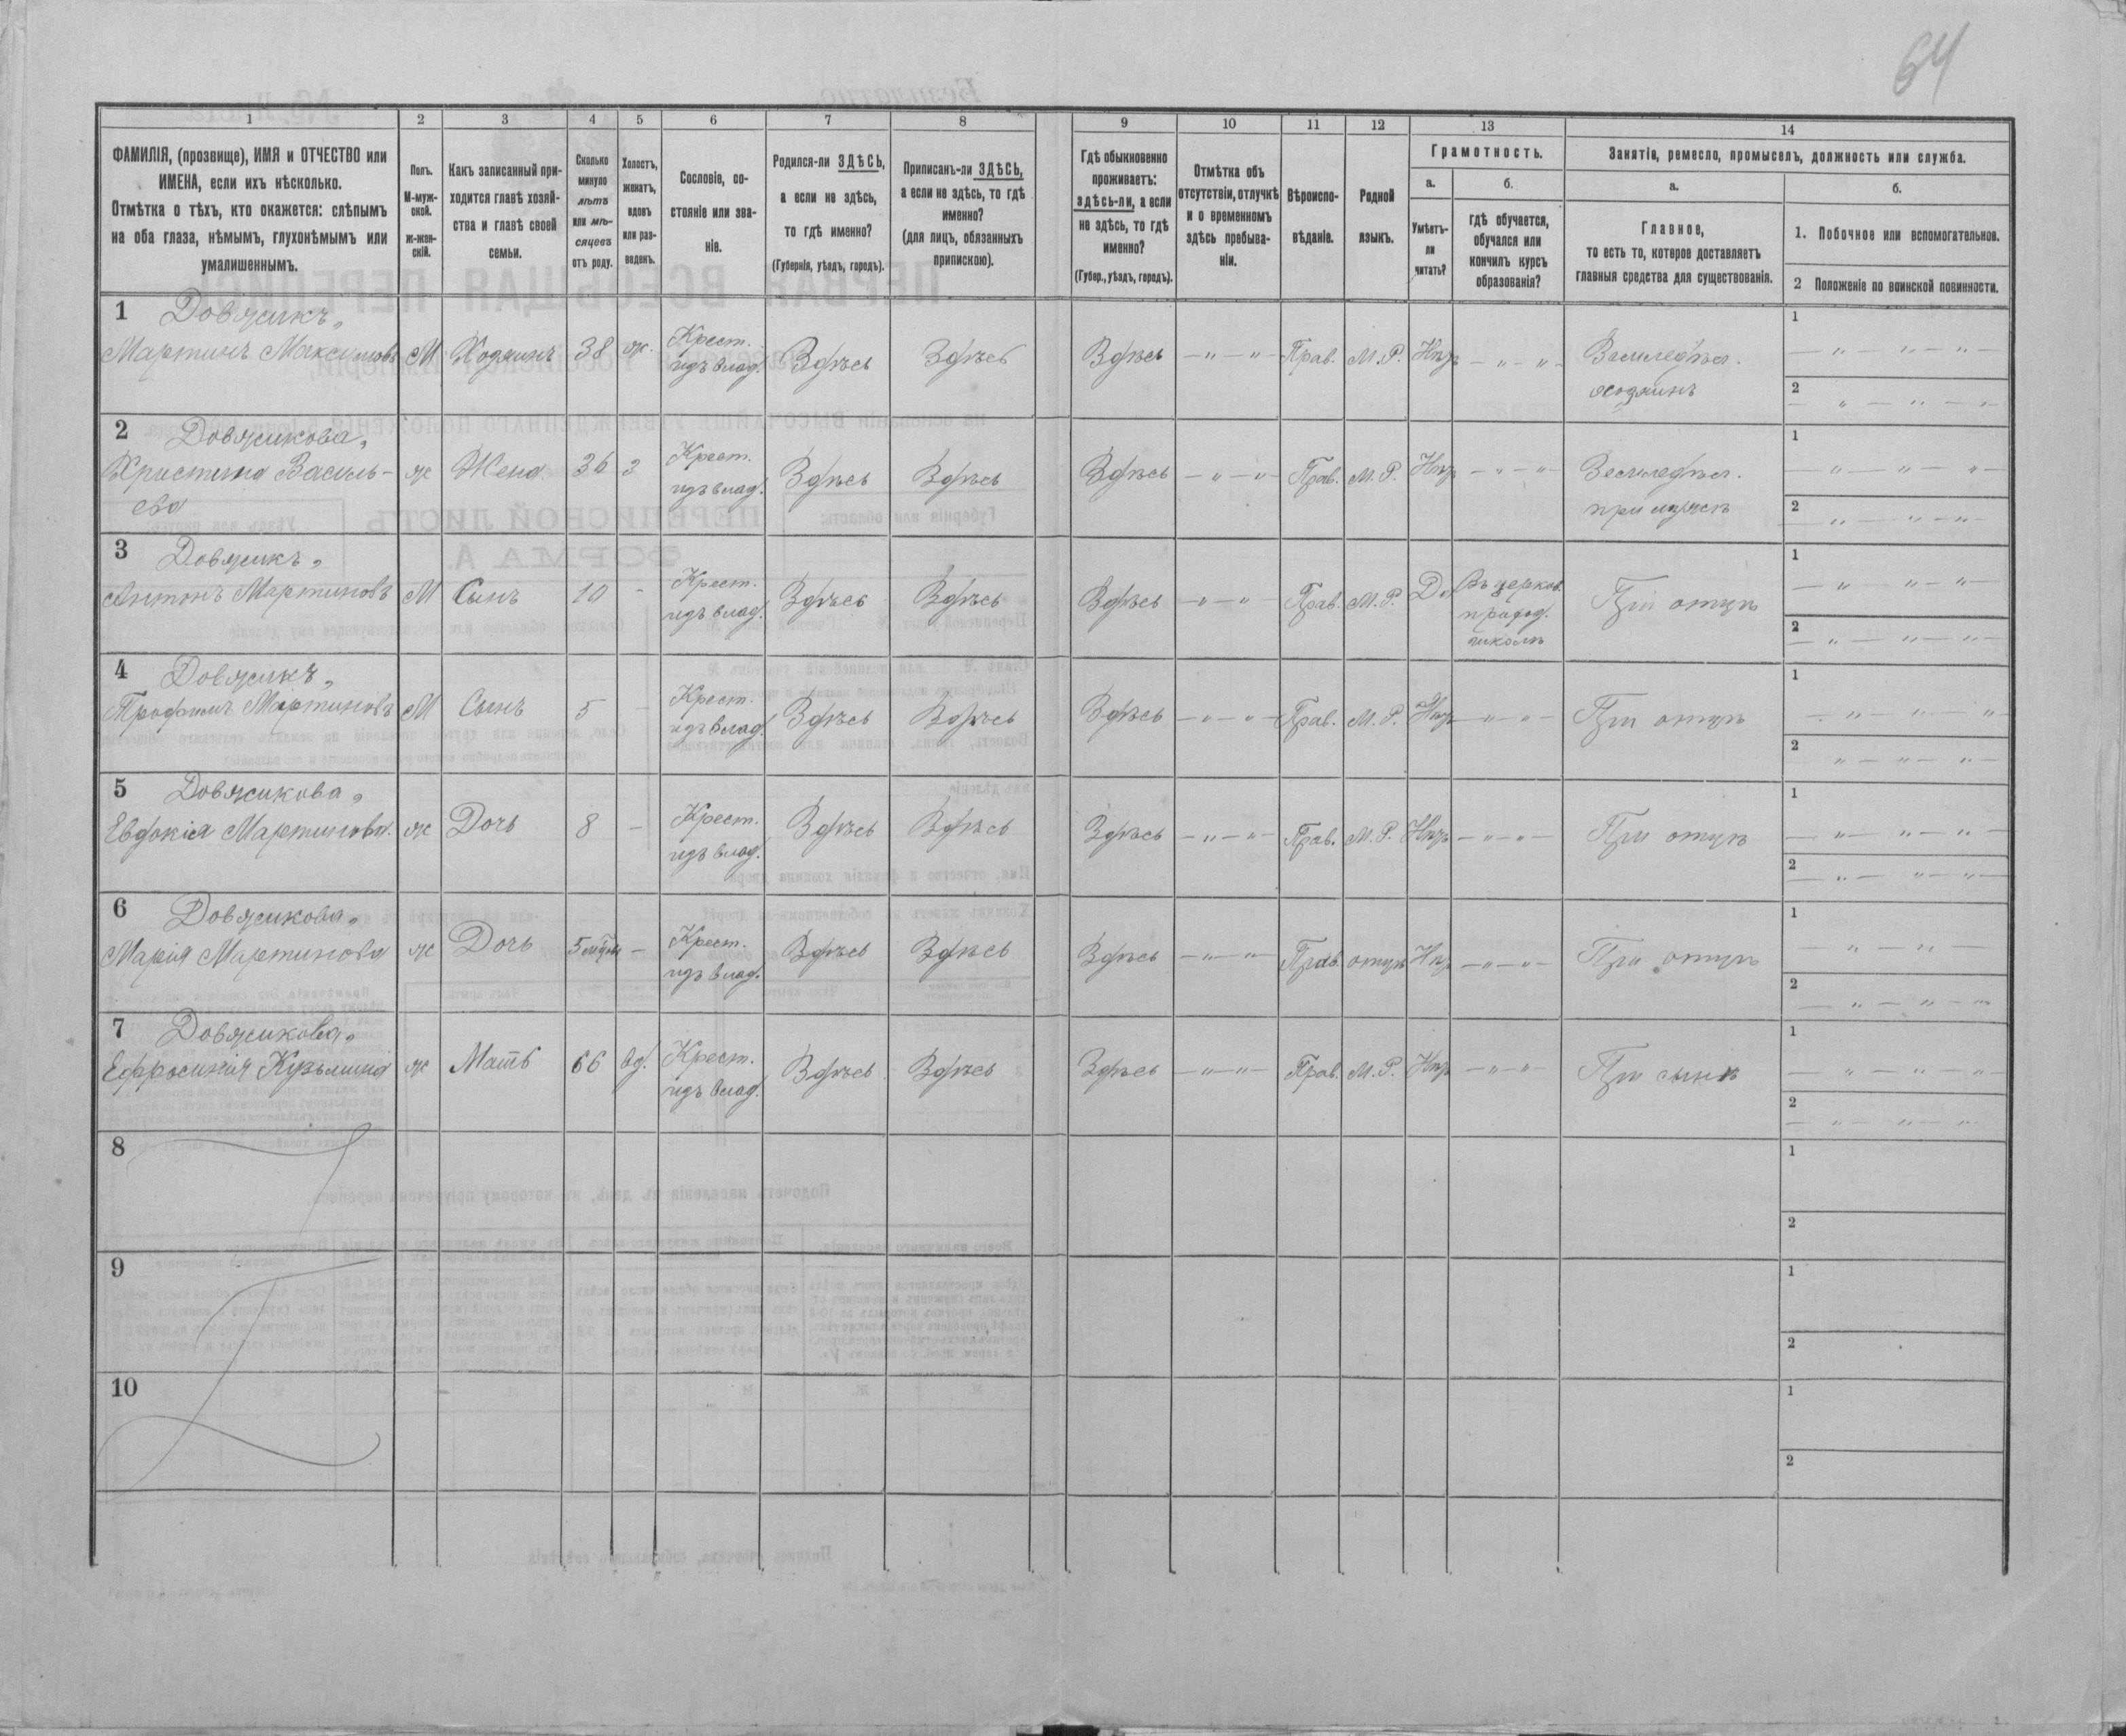 64
1 2 3 4 5 6 7 8 9 10 11 12 13 14
ФАМИЛІЯ, (прозвище), ИМЯ и ОТЧЕСТВО или
ИМЕНА, если ихъ нѣсколько.
Отмѣтка о тѣхъ, кто окажется: слѣпымъ
на оба глаза, нѣмымъ, глухонѣмымъ или
умалишеннымъ.
Полъ.
М-муж-
ской.
ж-жен-
скій.
Какъ записанный при-
ходится главѣ хозяй-
ства и главѣ своей
семьи.
Сколько
минуло
лѣтъ
или мѣ-
сяцевъ
отъ роду.
Холостъ,
женатъ,
вдовъ
или раз-
веденъ.
Сословіе, со-
стояніе или зва-
ніе.
Родился-ли ЗДѢСЬ,
а если не здѣсь,
то гдѣ именно?
(Губернія, уѣздъ, городъ).
Приписанъ-ли ЗДѢСЬ,
а если не здѣсь, то гдѣ
именно?
(для лицъ, обязанныхъ
припискою).
Гдѣ обыкновенно
проживаетъ:
здѣсь-ли, а если
не здѣсь, то гдѣ
именно?
(Губер., уѣздъ, городъ).
Отмѣтка объ
отсутствіи, отлучкѣ
и о временномъ
здѣсь пребыва-
ніи.
Вѣроиспо-
вѣданіе.
Родной
языкъ.
Грамотность.
а.
Умѣетъ-
ли
читать?
б.
гдѣ обучается,
обучался или
кончилъ курсъ
образованія?
Занятіе, ремесло, промыселъ, должность или служба.
а.
Главное,
то есть то, которое доставляетъ
главныя средства для существованія.
б.
1. Побочное или вспомогательное.
2 Положеніе по воинской повинности.
1 Довжикъ,
Мартинъ Максимовъ М Хозяинъ 38 ж. Крест. изъ влад. Здѣсь Здѣсь Здѣсь — " — " — Прав. М.Р. Нѣтъ — " — " — Земледѣл. хозяинъ
1 — " — " — " —
2 — " — " — " —
2 Довжикова,
Христина Василь-
ева ж Жена 36 з Крест. изъ влад. Здѣсь Здѣсь Здѣсь — " — " — Прав. М.Р. Нѣтъ — " — " Земледѣл. при мужѣ
1 — " — " — " —
2 — " — " — " —
3 Довжикъ,
Антонъ Мартиновъ М Сынъ 10 - Крест. изъ влад. Здѣсь Здѣсь Здѣсь — " — " — Прав. М.Р. Да Въ церков. приход. школѣ При отцѣ
1 — " — " — " —
2 — " — " — " —
4 Довжикъ,
Трофимъ Мартиновъ М Сынъ 5 - Крест. изъ влад. Здѣсь Здѣсь Здѣсь — " — " — Прав. М.Р. Нѣтъ — " — " — При отцѣ
1 — " — " — "
2 " — " — " —
5 Довжикова,
Евдокія Мартинова. ж Дочь 8 — Крест. изъ влад. Здѣсь Здѣсь Здѣсь — " — " — Прав. М.Р. Нѣтъ — " — " — При отцѣ
1 — " — " — " —
2 — " — " — " —
6 Довжикова,
Марія Мартинова ж Дочь 5 мѣсяц — Крест. изъ влад. Здѣсь Здѣсь Здѣсь — " — " Прав. отца Нѣтъ — " — " — При отцѣ
1 — " — " —
2 — " — " — "
7 Довжикова,
Ефросинія Кузьмина ж Мать 66 вд. Крест. изъ влад. Здѣсь Здѣсь Здѣсь — " — " — Прав. М.Р. Нѣтъ — " — " — При сынѣ
1 — " — " — " —
2 — " — " — "
8
1
2
9
1
2
10
1
2